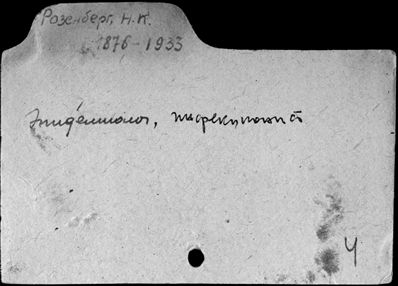 Розенберг, Н.К.
1876-1933
Эпидемиолог, инфекционист
Ч